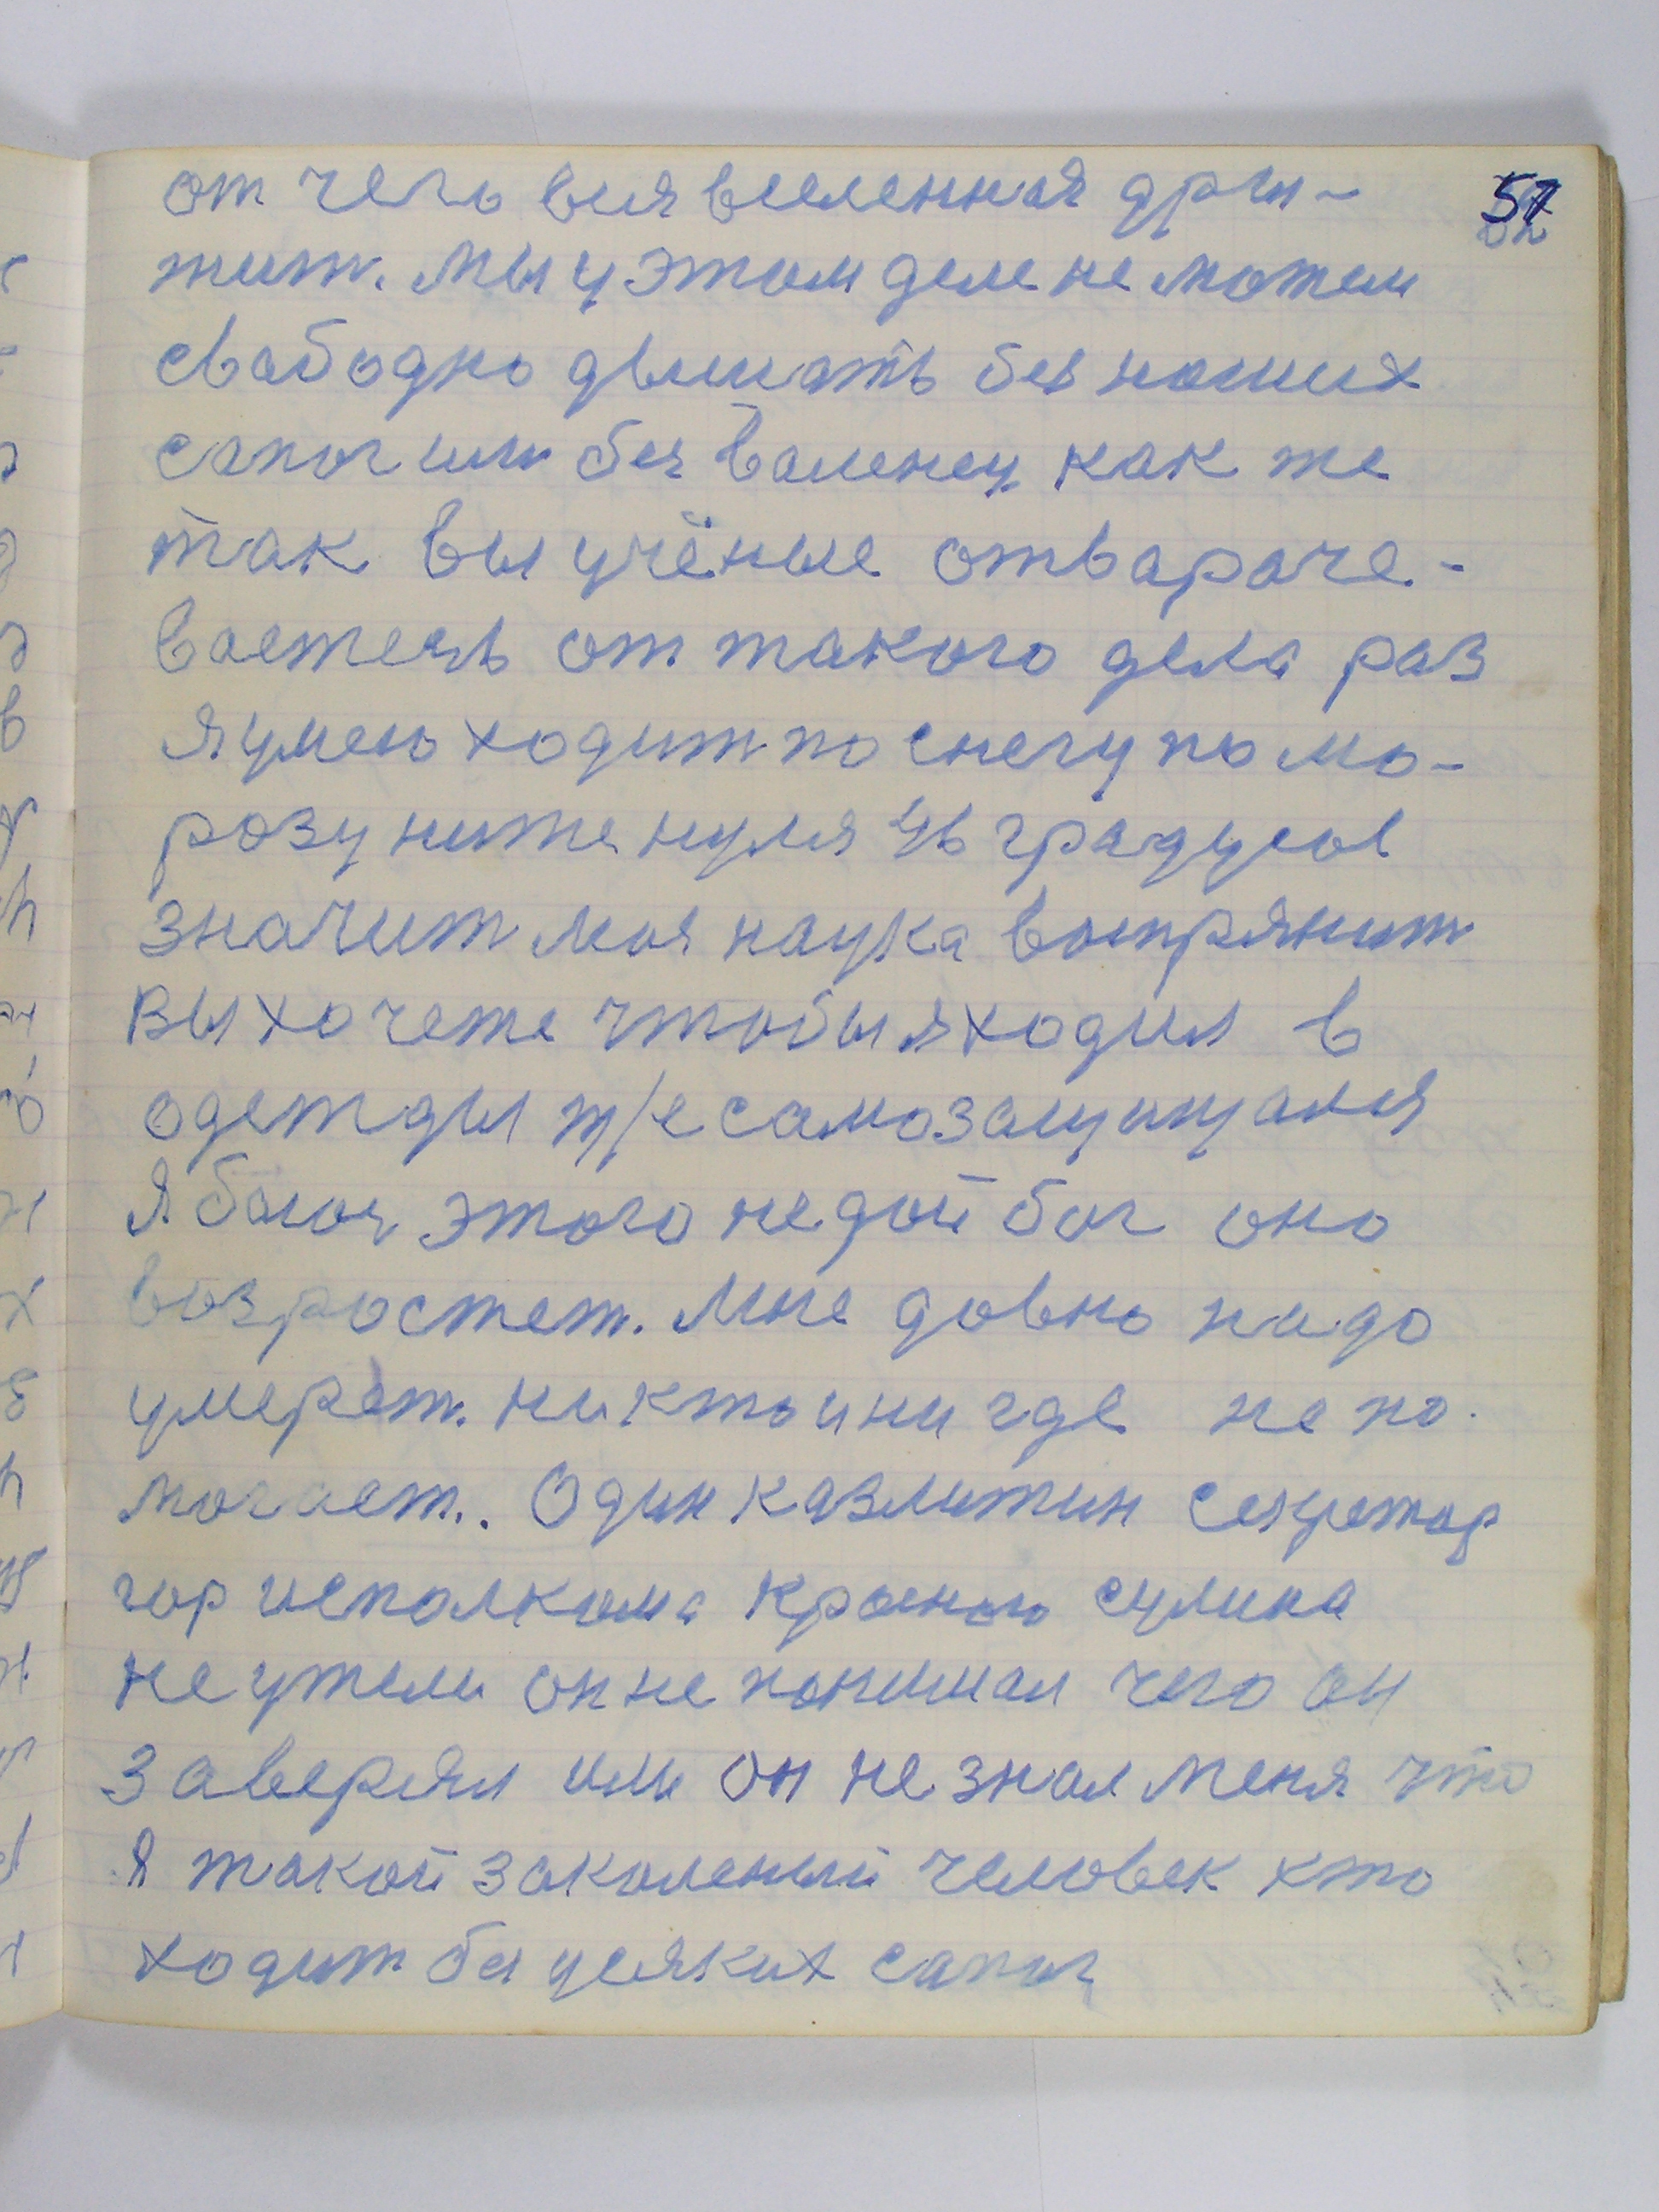 57
от чего вся вселенная дри-
жит. Мы у этом деле не можем
свабодно двишать без наших
сапог или без валенец как же
так вы учёные отвараче-
ваетесь от такого дела раз
я умею ходит по снегу по мо-
розу ниже нуля 46 градусов
значит моя наука воспрянит
вы хочете чтобы я ходил в
одежды т/е самозащищался
я боюсь этого не дай бог оно
возростет. Мне давно надо
умерет. никто и ни где не по-
могает.. Один казлитин секретар
гор исполкома красного сулина
не ужели он не понимал чего он
заверял или он не знал меня что
я такой закаленый человек хто
ходит без усяких сапог